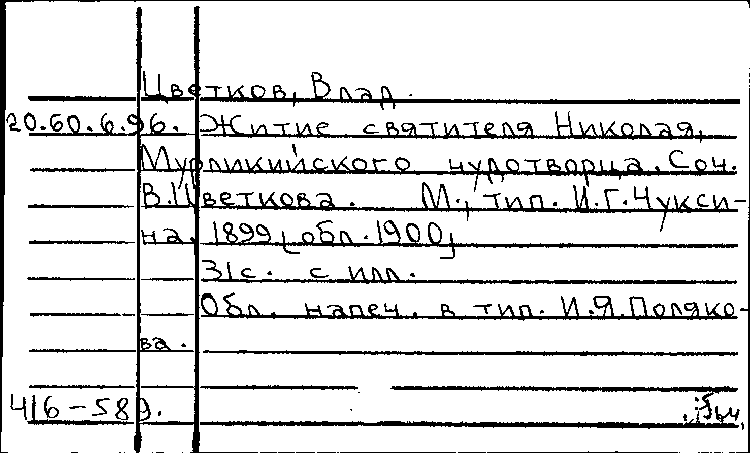 Цветков, Влад.
20.60.6.96. Житие святителя Николая,
Мурликийского чудотворца. Соч.
В. Цветкова. М., тип. И.Г. Чукси-
на, 1899 [обл. 1900]
31с. с илл.
Обл. напеч. в тип. И.Я. Поляко-
ва.
416-589.